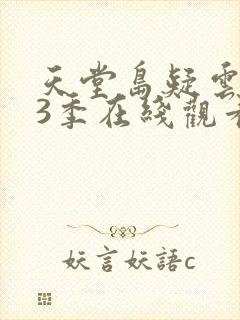 天堂島疑雲
3季在綫觀看
妖言妖語c